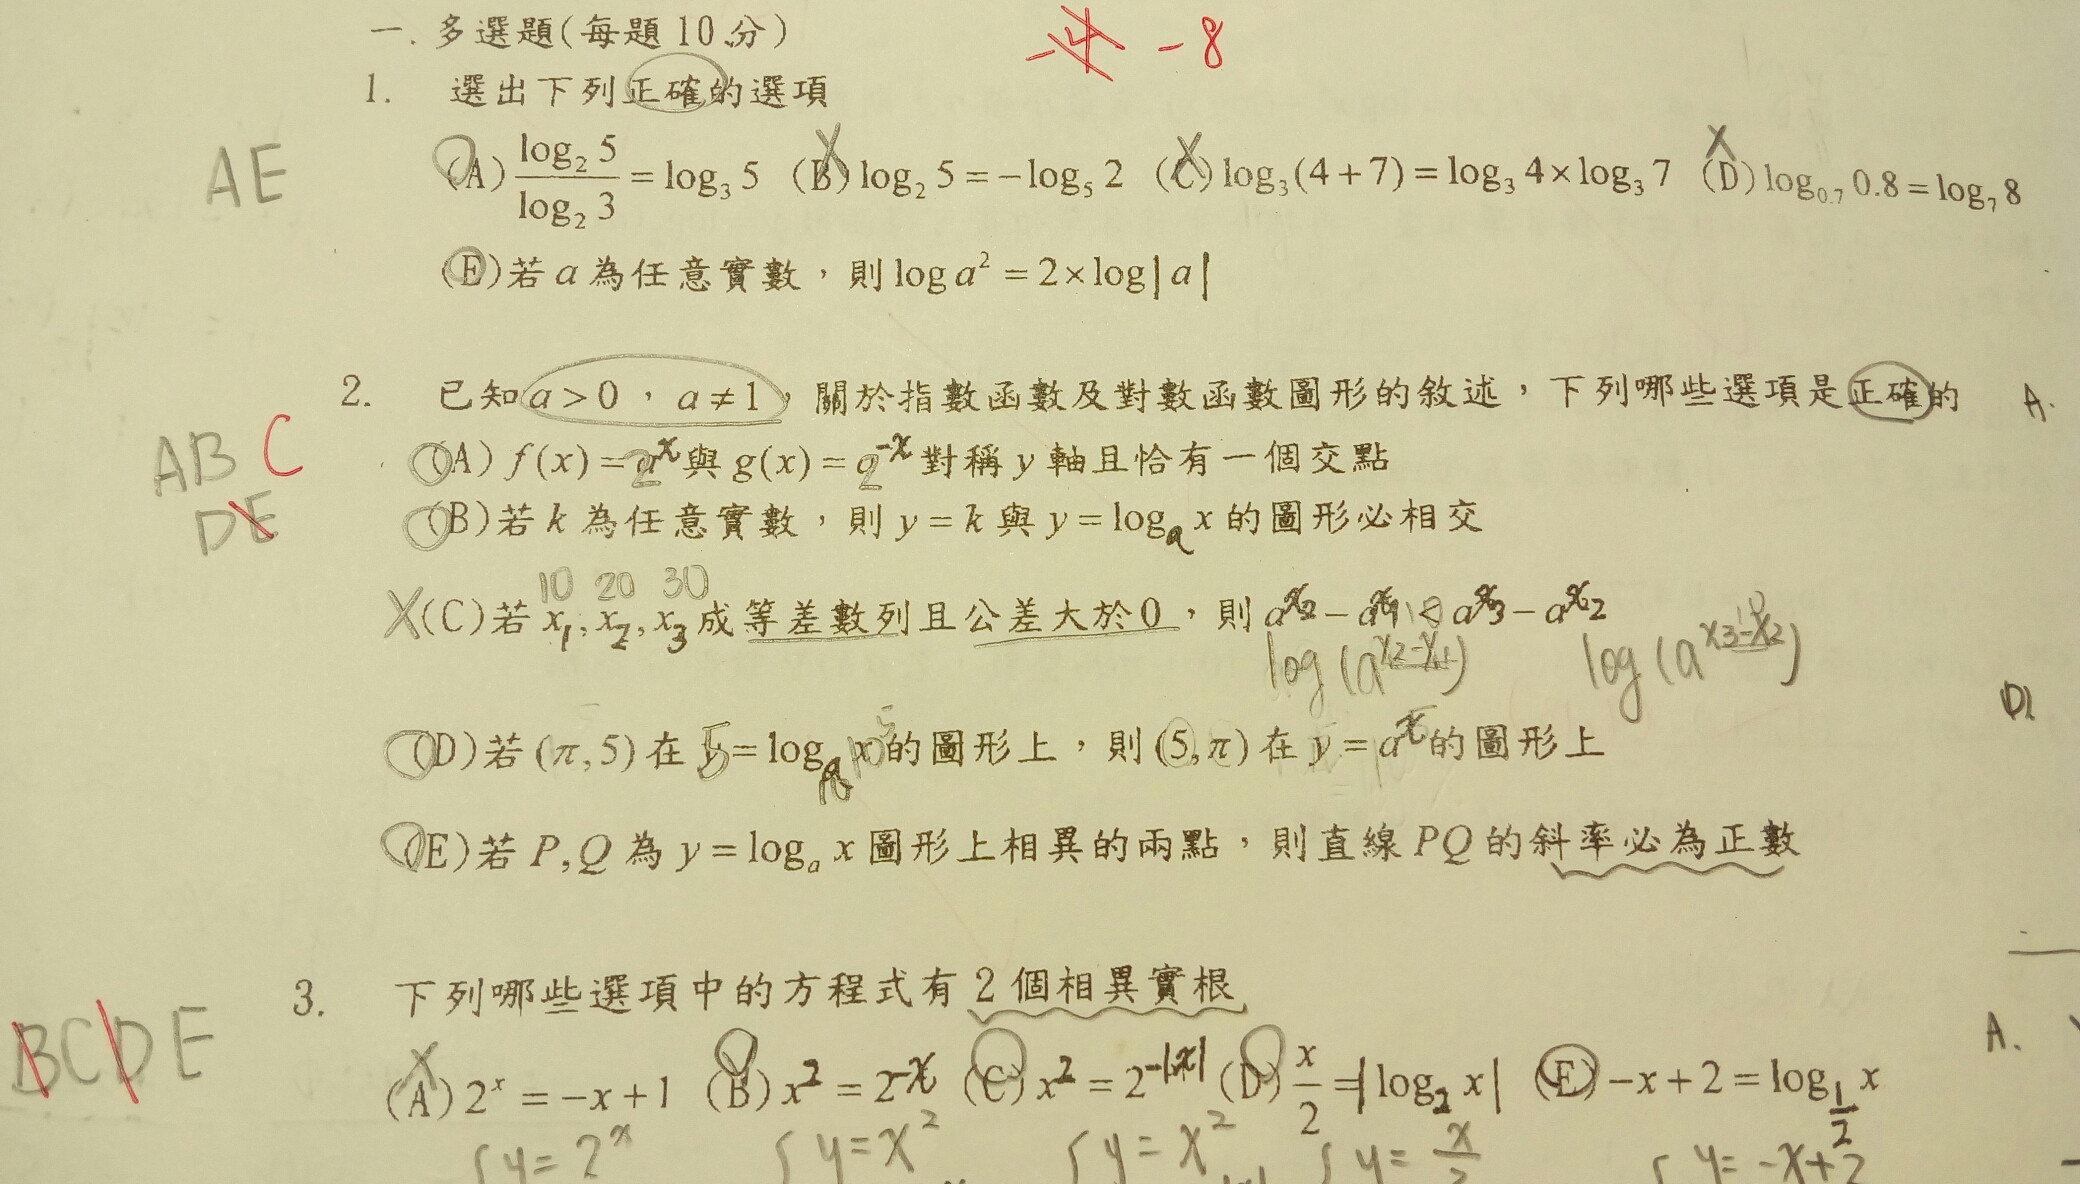 一. 多選題(每題10分)
-4 -8
1. 選出下列正確的選項
AE
(A) \frac{log₂ 5}{log₂ 3} = log₃ 5 (B) log₂ 5 = -log₅ 2 (C) log₃(4+7) = log₃ 4×log₃ 7 (D) log₀.₇ 0.8 = log₇ 8
(E)若 a 為任意實數，則 log a² = 2×log|a|
2. 已知 a>0，a≠1，關於指數函數及對數函數圖形的敘述，下列哪些選項是正確的
A.
ABC
DE
(A) f(x) = a^x 與 g(x) = a^{-x} 對稱 y 軸且恰有一個交點
(B)若 k 為任意實數，則 y = k 與 y = log_a x 的圖形必相交
10 20 30
X(C)若 x₁, x₂, x₃ 成等差數列且公差大於0，則 a^{x₂} - a^{x₁} < a^{x₃} - a^{x₂}
log(a^{x₂-x₁}) log(a^{x₃-x₂})
(D)若 (π,5) 在 y = log_a x 的圖形上，則 (5,π) 在 y = a^x 的圖形上
(E)若 P,Q 為 y = log_a x 圖形上相異的兩點，則直線 PQ 的斜率必為正數
3. 下列哪些選項中的方程式有 2 個相異實根
BCDE
A.
(A) 2^x = -x+1 (B) x² = 2^{-x} (C) x² = 2^{-|x|} (D) \frac{x}{2} = |log₂ x| (E) -x+2 = log_{\frac{1}{2}} x
y = 2^x y = x² y = x² y = \frac{x}{2} y = -x+2